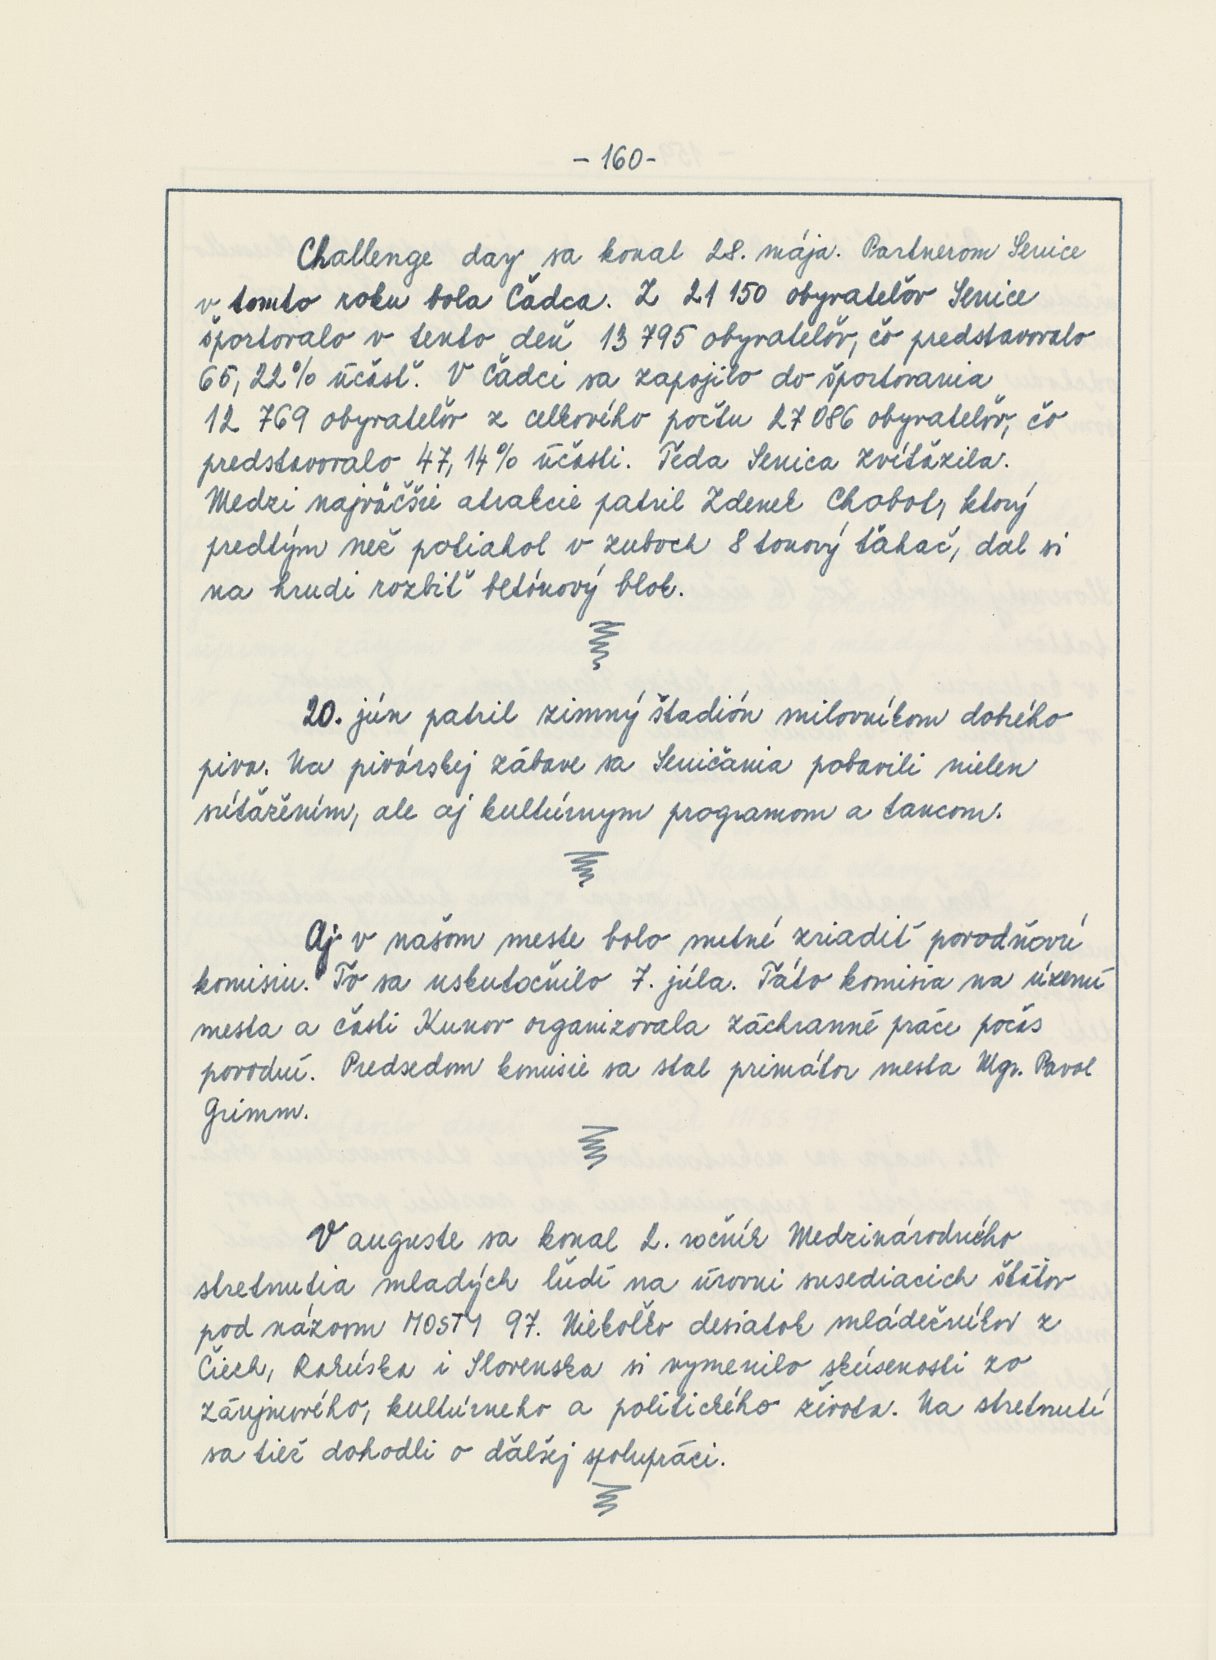 - 160 -
Challenge day sa konal 28. mája. Partnerom Senice
v tomto roku bola Čadca. Z 21 150 obyvateľov Senice
športovalo v tento deň 13 795 obyvateľov, čo predstavovalo
65,22% účasť. V Čadci sa zapojilo do športovania
12 769 obyvateľov z celkového počtu 27 086 obyvateľov, čo
predstavovalo 47,14% účasti. Teda Senica zvíťazila.
Medzi najväčšie atrakcie patril Zdenek Chabot, ktorý
predtým než potiahol v zuboch 8 tonový ťahač, dal si
na hrudi rozbiť betónový blok.
20. jún patril zimný štadión milovníkom dobrého
piva. Na pivárskej zábave sa Seničania pobavili nielen
súťažením, ale aj kultúrnym programom a tancom.
Aj v našom meste bolo nutné zriadiť povodňovú
komisiu. To sa uskutočnilo 7. júla. Táto komisia na území
mesta a časti Kunov organizovala záchranné práce počas
povodní. Predsedom komisie sa stal primátor mesta Mgr. Pavol
Grimm.
V auguste sa konal 2. ročník Medzinárodného
stretnutia mladých ľudí na úrovni susediacich štátov
pod názvom MOSTY 97. Niekoľko desiatok mládežníkov z
Čiech, Rakúska i Slovenska si vymenilo skúsenosti zo
záujmového, kultúrneho a politického života. Na stretnutí
sa tiež dohodli o ďalšej spolupráci.